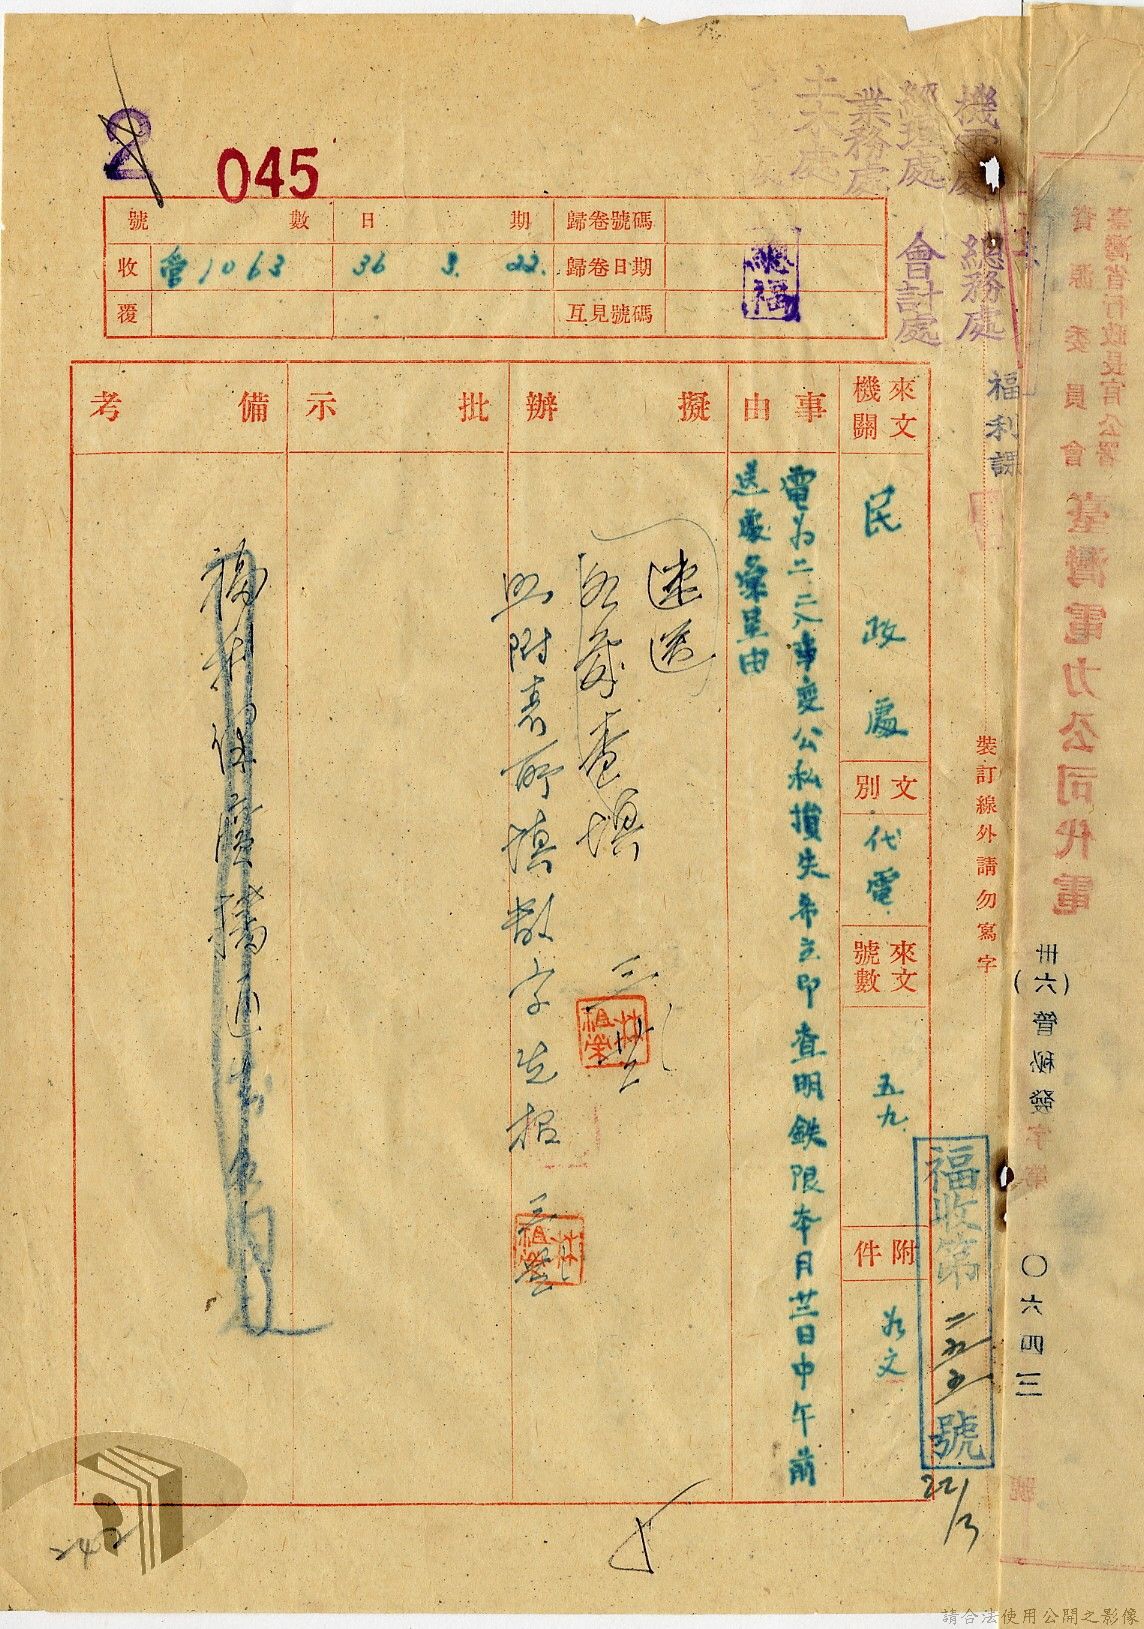 2
045
機電處
經理處
業務處
土木處
總務處
會計處
福利課
號數
日期
歸卷號碼
收
會1063
36 3. 22.
歸卷日期
總福
覆
互見號碼
來文機關
民政處
文別
代電
來文號數
五九
附件
如文
事由
電為二二八事变公私損失希立即查明鉄限本月廿三日中午前
送處彙呈由
擬辦
速送
各課查填
三
照附表所填数字先報
批示
備考
福利課
裝訂線外請勿寫字
福收第
二五五
號
22/3
臺灣省行政長官公署
資源委員會
臺灣電力公司代電
卅六(
)管秘發字第
〇六四三
號
242
請合法使用公開之影像